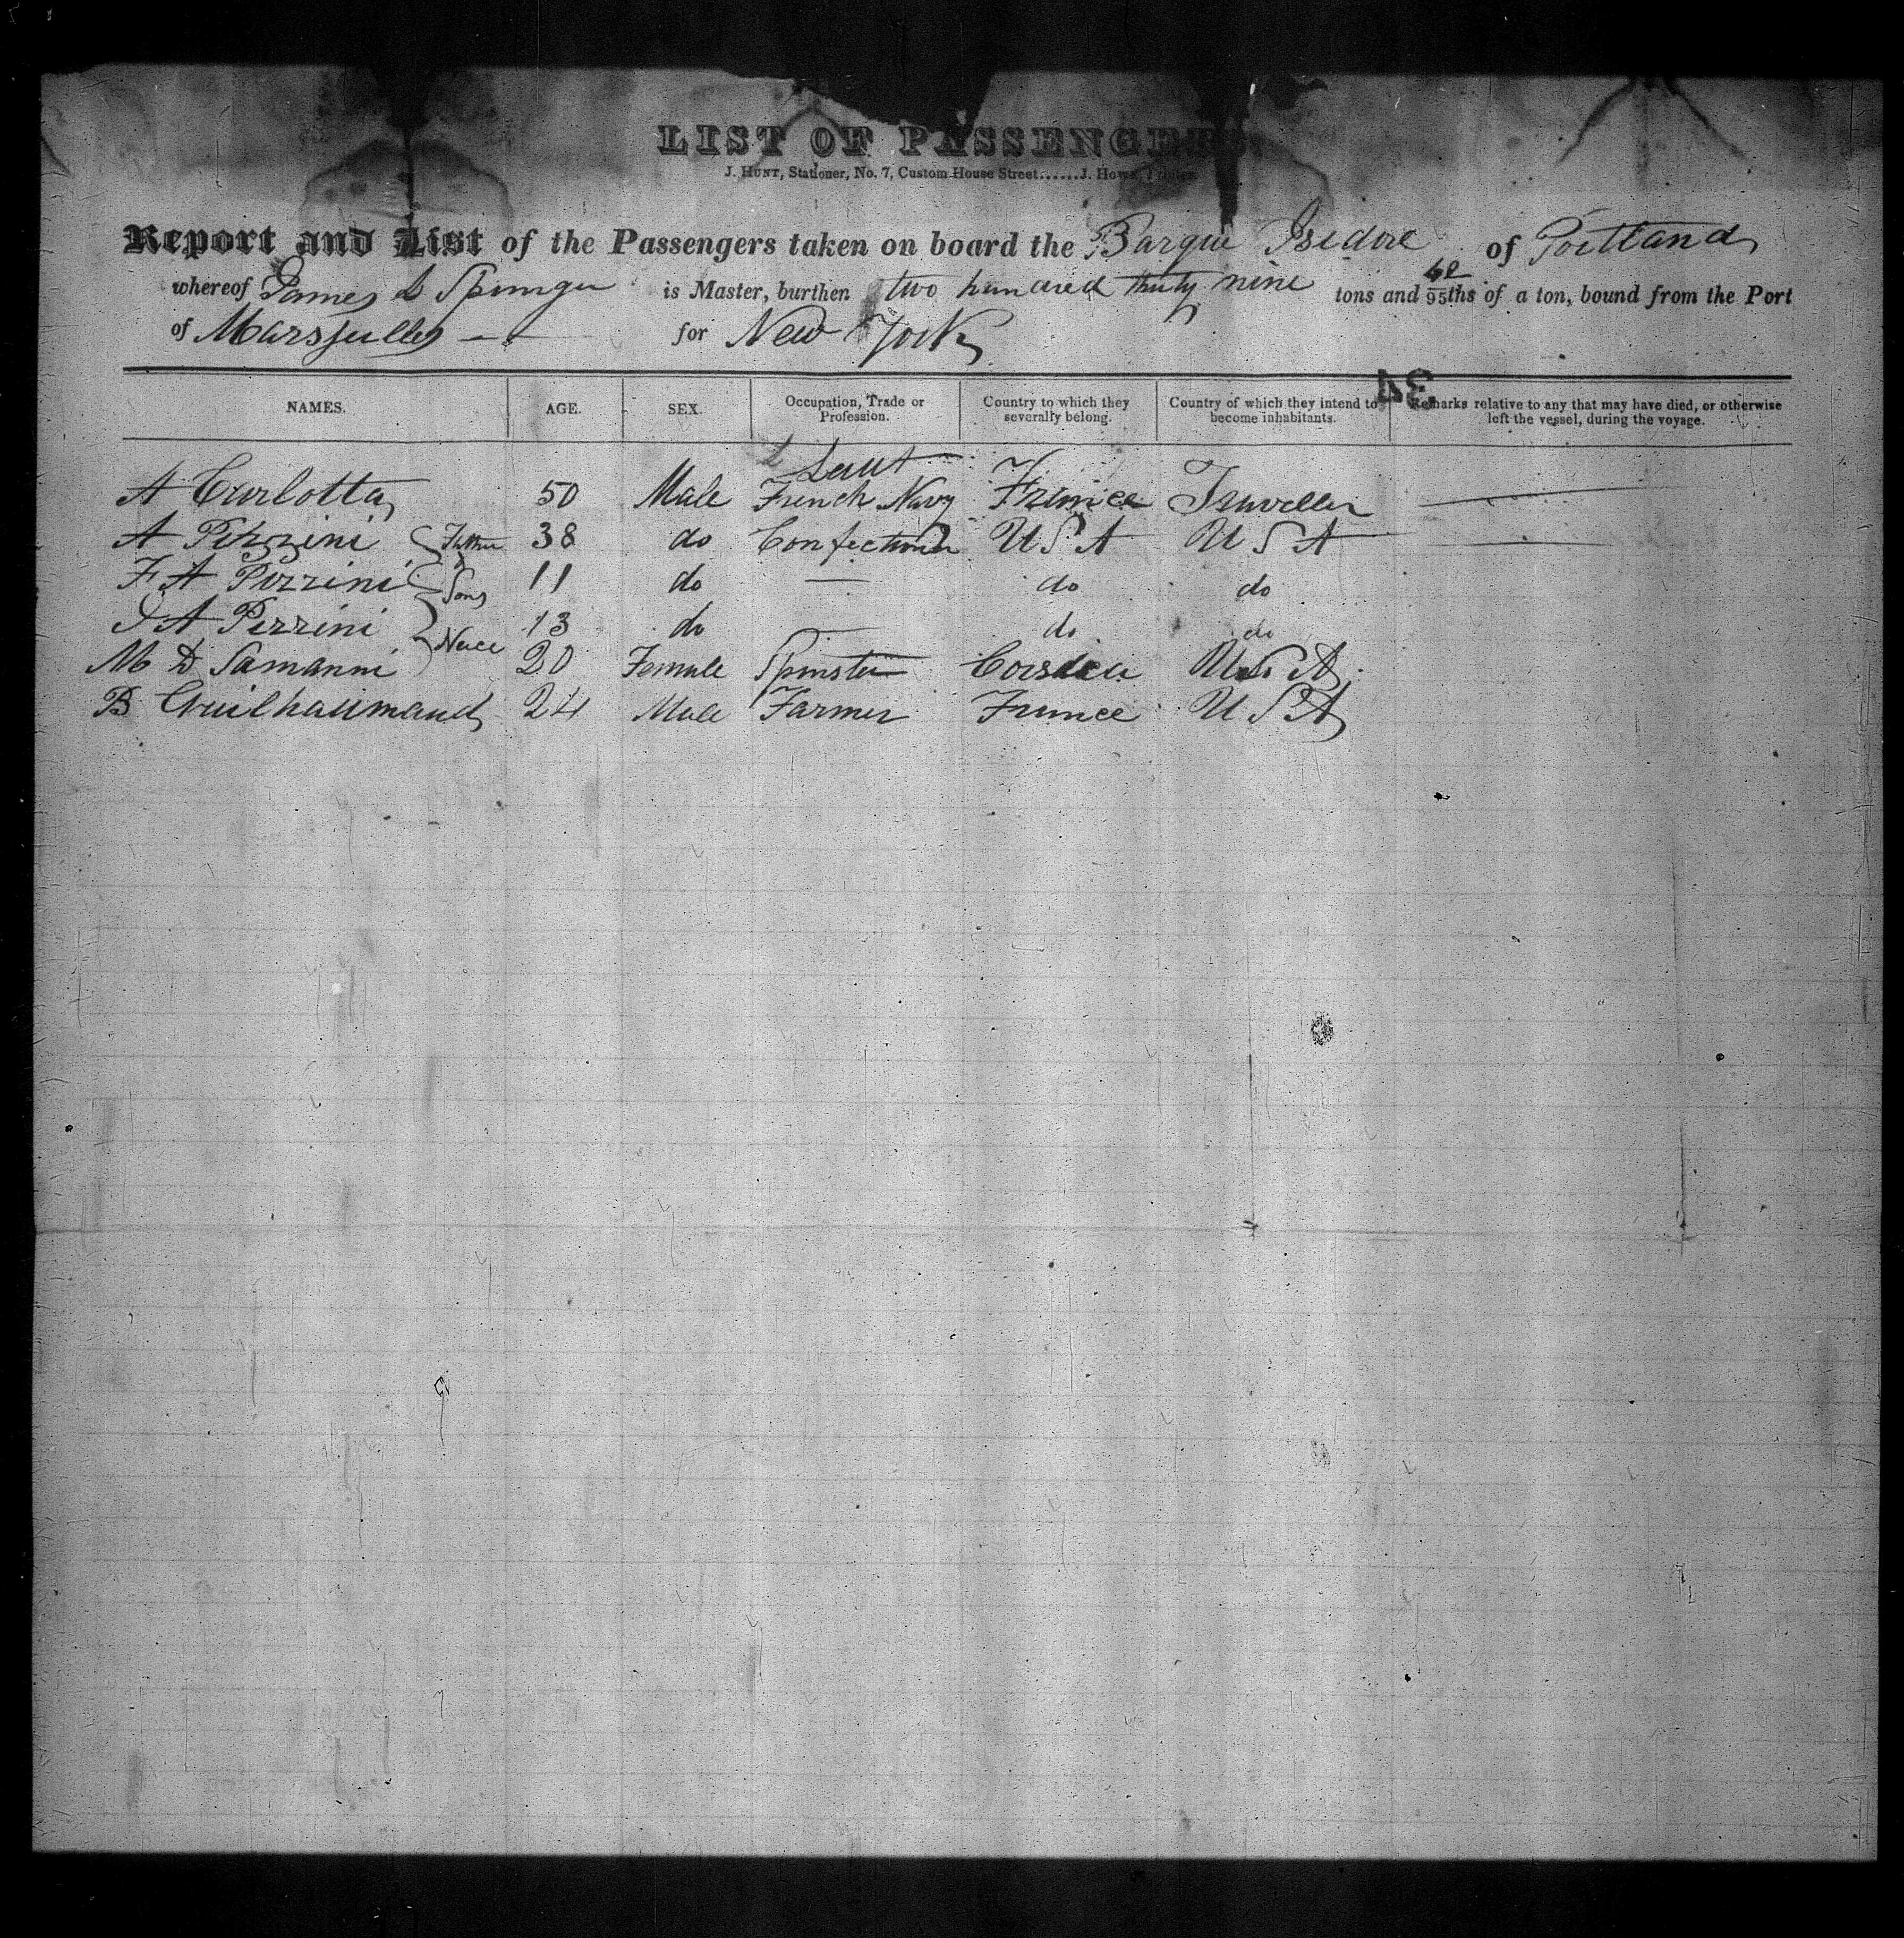 LIST OF PASSENGERS
J. HUNT, Stationer, No. 7, Custom House Street......J. Howe, Printer
Report and List of the Passengers taken on board the Barque Isidore of Portland
whereof James Springer is Master, burthen two hundred thirty nine 62/95ths tons and of a ton, bound from the Port
of Marsjulles — for New York
34
NAMES. AGE. SEX. Occupation, Trade or Profession. Country to which they severally belong. Country of which they intend to become inhabitants. Remarks relative to any that may have died, or otherwise left the vessel, during the voyage.
Leaut
A Carlotta 50 Male French Navy France Traveller —
A Pezzini Father 38 do Confectioner U S A U S A —
F A Pezzini Sons 11 do — do do
A Pezzini 13 do — do do
M D Samanni Neice 20 Female Spinster Corsica U S A
B Guilhaumaud 24 Male Farmer France U S A